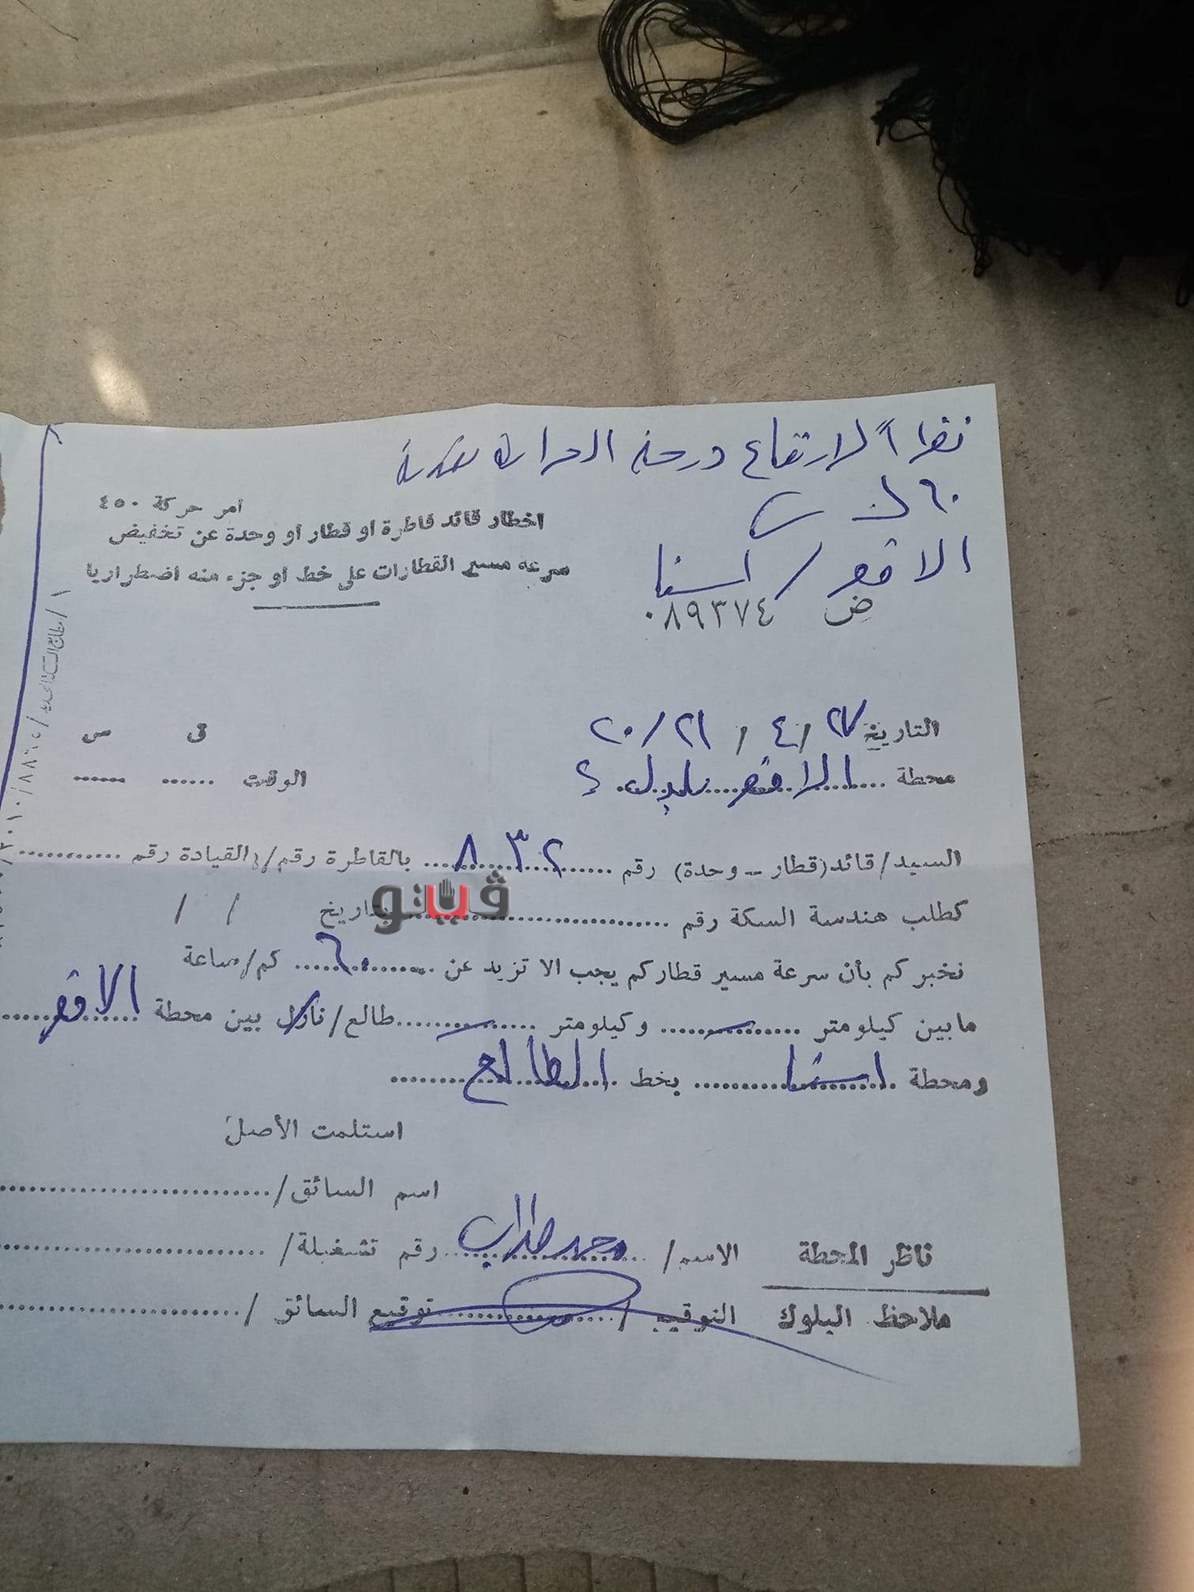 نظراً لارتفاع درجة الحرارة سرعة
٦٠ ك س
الاقصر / اسنا
ض ٠٨٩٣٧٤
أمر حركة ٤٥٠
اخطار قائد قاطرة او قطار او وحدة عن تخفيض
سرعه مسير القطارات على خط او جزء منه اضطراريا
التاريخ ٢٧ / ٤ / ٢٠٢١
ق س
محطة الاقصر بلوك ٤
الوقت ...... ......
السيد/قائد(قطار – وحدة) رقم ٨٣٢ بالقاطرة رقم/القيادة رقم ............
كطلب هندسة السكة رقم ............ بتاريخ / /
ڤيتو
نخبركم بأن سرعة مسير قطاركم يجب الا تزيد عن ٦٠ كم/ساعة
مابين كيلومتر ــ وكيلومتر ــ طالع/نازل بين محطة الاقصر
ومحطة اسنا بخط الطالع
استلمت الأصل
اسم السائق/............
ناظر المحطة
الاسم/ رقم تشغيلة/............
ملاحظ البلوك
التوقيع/ توقيع السائق/............